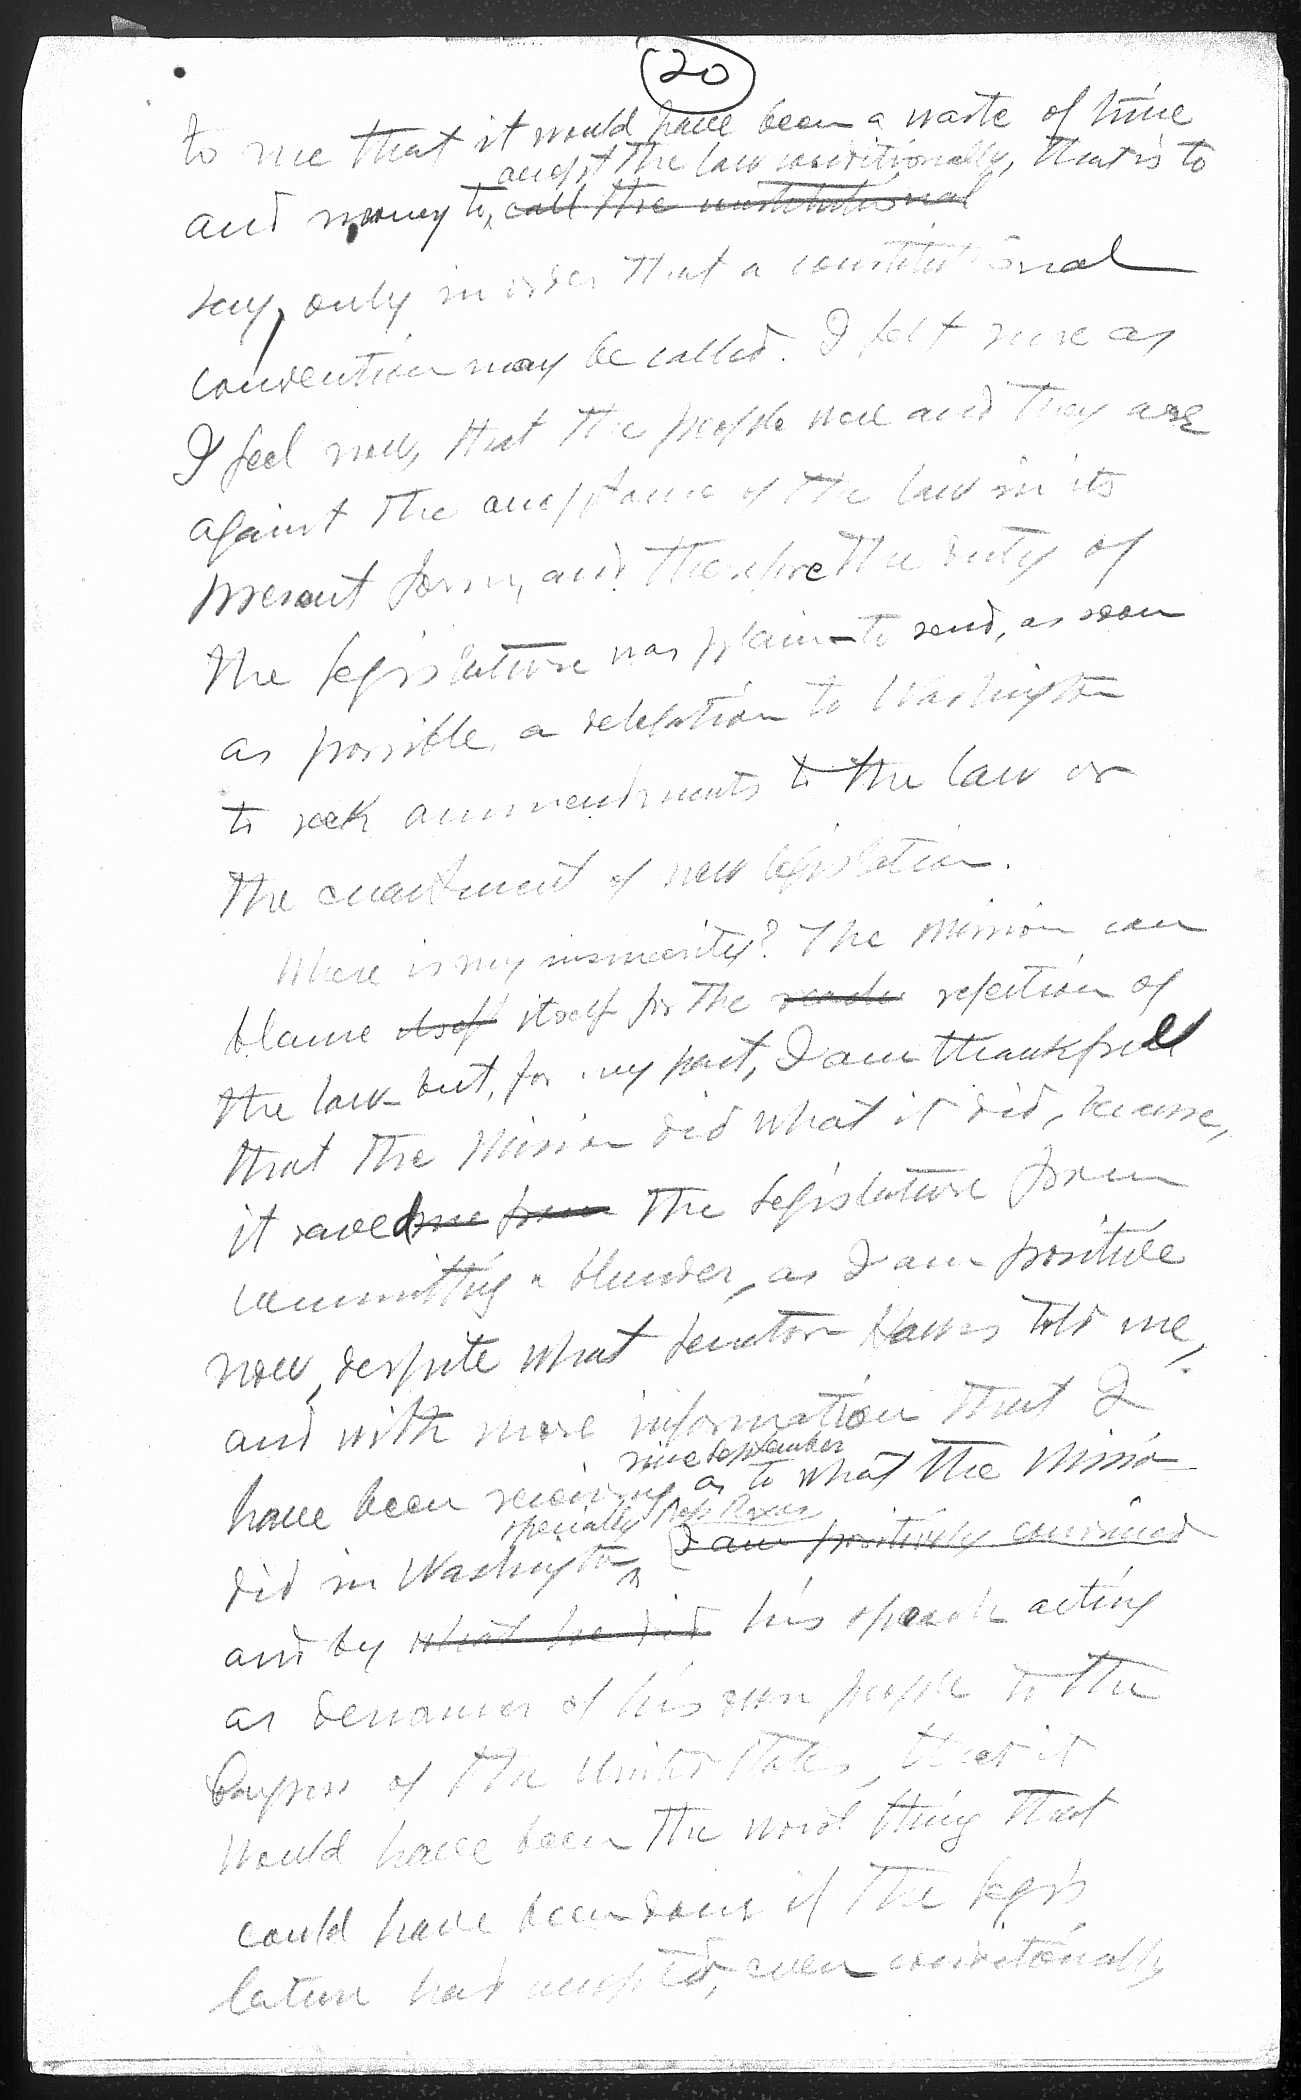 20
to me that it would have been a waste of time
accept the law conditionally, that is to
and money to call the constitutional
say, only in order that a constitutional
convention may be called. I felt sure as
I feel now, that the people were and they are
against the acceptance of the law in its
present form, and therefore the duty of
the legislature was plain to send, as soon
as possible, a delegation to Washington
to seek ammendments to the law or
the enactment of new legislation.
Where is my insincerity? The Mission can
blame itself for the rejection of
the law but, for my part, I am thankful
that the Mission did what it did, because,
it saved me from the legislature from
committing a blunder, as I am positive
now, despite what Senator Hawes told me,
and with more information that I
since September
have been receiving as to what the Mission
specially Mr. Roxas
did in Washington I am positively convinced
and by what he did his speech acting
as denouncer of his own people to the
Congress of the United States, that it
would have been the worst thing that
could have been done if the legis
lature had accepted, even conditionally